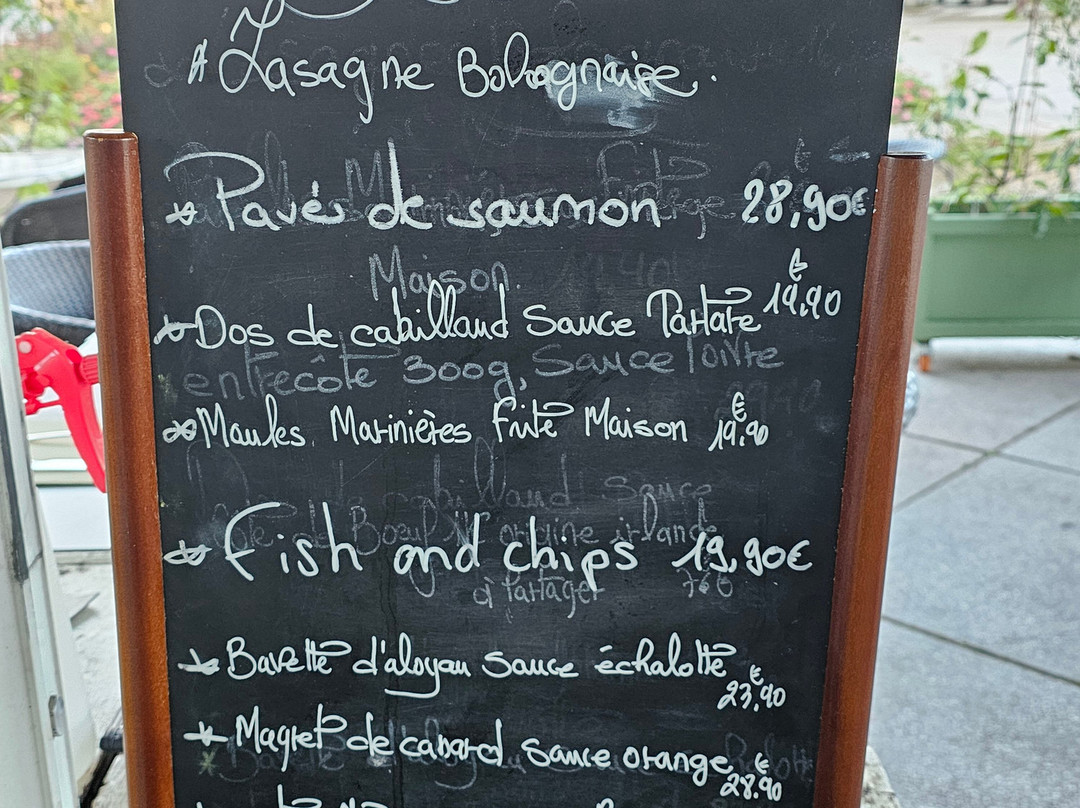 * Lasagne Bolognaise.
* Pavés de saumon 28,90€
Maison.
* Dos de cabillaud Sauce Tartare 19,90 €
entrecôte 300g, Sauce Poivre
* Moules Marinières frite Maison 19,90 €
cabillaud sauce
Côte de Boeuf origine irlande
* Fish and chips 19,90€
à Partager 76€
* Bavette d'aloyau Sauce échalotte 23,90 €
* Magret de canard sauce orange 28.90 €